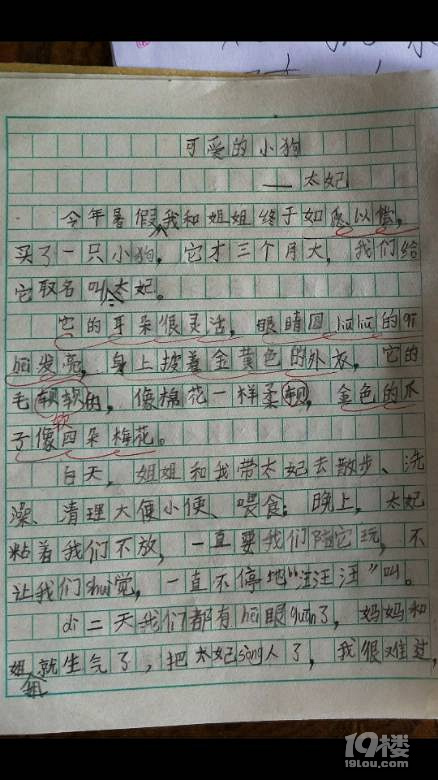 可爱的小狗
——太妃
今年暑假,我和姐姐终于如愿以偿,
买了一只小狗,它才三个月大,我们给
它取名叫太妃。
它的耳朵很灵活,眼睛圆liūliū的
发亮,身上披着金黄色的外衣,它的
毛软软的,像棉花一样柔
软
金色的爪
子像四朵梅花。
白天,姐姐和我带太妃去散步、洗
澡、清理大便小便、喂食;晚上,太妃
粘着我们不放,一直要我们陪它玩,不
让我们shuì觉,一直不停地“汪汪汪”叫。
di二天我们都有hēi眼quān了,妈妈和
姐就生气了,把太妃sòng人了,我很难过,
姐
19楼
19lou.com